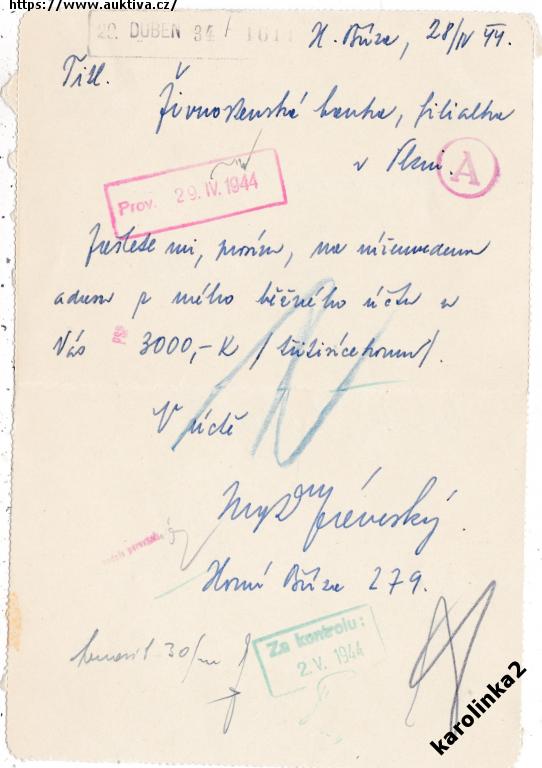 https://www.auktiva.cz/
29. DUBEN 34 1611
H. Bříza, 28/IV 44.
Titl.
Živnostenská banka, filialka
v Plzni.
A
Prov. 29. IV. 1944
Zašlete mi, prosím, na níže uvedenou
adresu z mého běžného účtu u
Vás 3000,- K /třitisícekorun/.
V úctě
Horní Bříza 279.
30/
Za kontrolu:
2. V. 1944
karolinka2